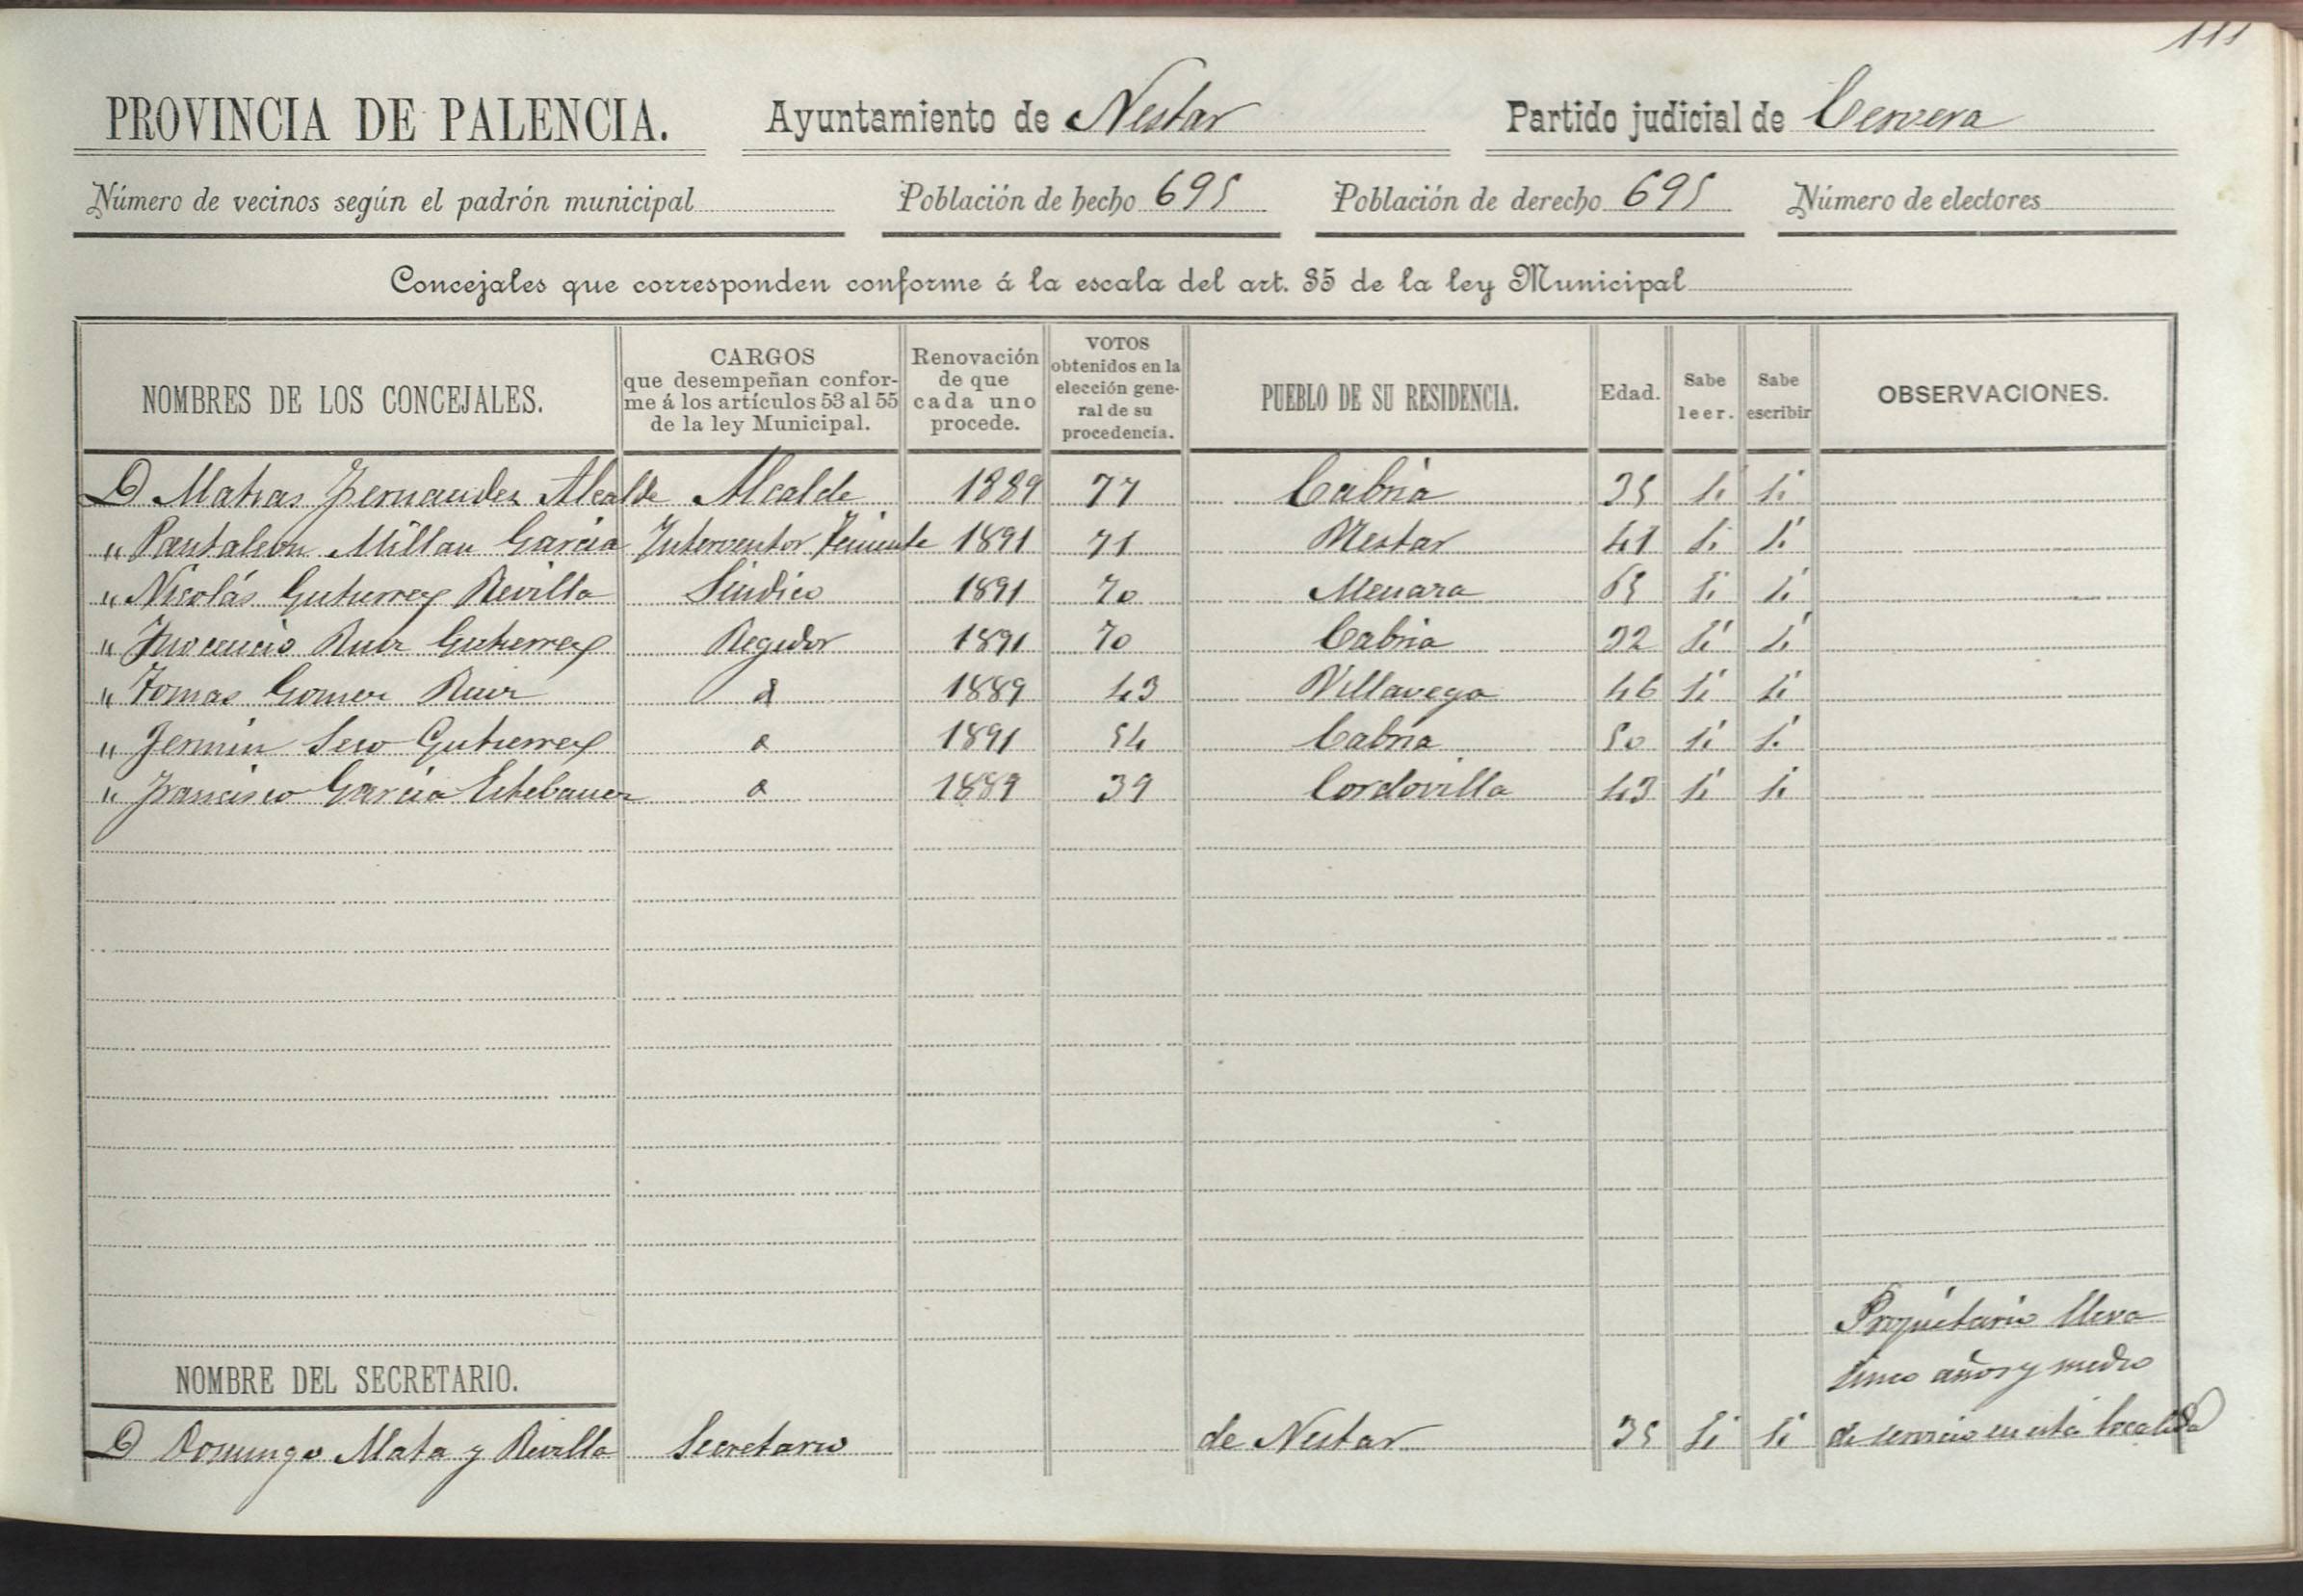 111
PROVINCIA DE PALENCIA. Ayuntamiento de Nestar Partido judicial de Cervera
Número de vecinos según el padrón municipal Población de hecho 695 Población de derecho 695 Número de electores
Concejales que corresponden conforme á la escala del art. 35 de la ley Municipal
NOMBRES DE LOS CONCEJALES. CARGOS que desempeñan confor-me á los artículos 53 al 55 de la ley Municipal. Renovación de que cada uno procede. VOTOS obtenidos en la elección gene-ral de su procedencia. PUEBLO DE SU RESIDENCIA. Edad. Sabe leer. Sabe escribir OBSERVACIONES.
D Matias Fernandez Alcalde Alcalde 1889 77 Cabria 35 Si Si
" Pantaleon Millan Garcia Interventor Teniente 1891 71 Nestar 41 Si Si
" Nicolás Gutierrez Revilla Sindico 1891 70 Menaza 65 Si Si
" Inocencio Ruiz Gutierrez Regidor 1891 70 Cabria 32 Si Si
" Tomas Gomez Ruiz 1889 43 Villavega 46 Si Si
" Fermin Seco Gutierrez 1891 54 Cabria 50 Si Si
" Francisco Garcia Estebanez 1889 39 Cordovilla 43 Si Si
Propietario lleva
NOMBRE DEL SECRETARIO. cinco años y medio
D Domingo Mata y Revilla Secretario de Nestar 35 Si Si de servicio en esta localidad